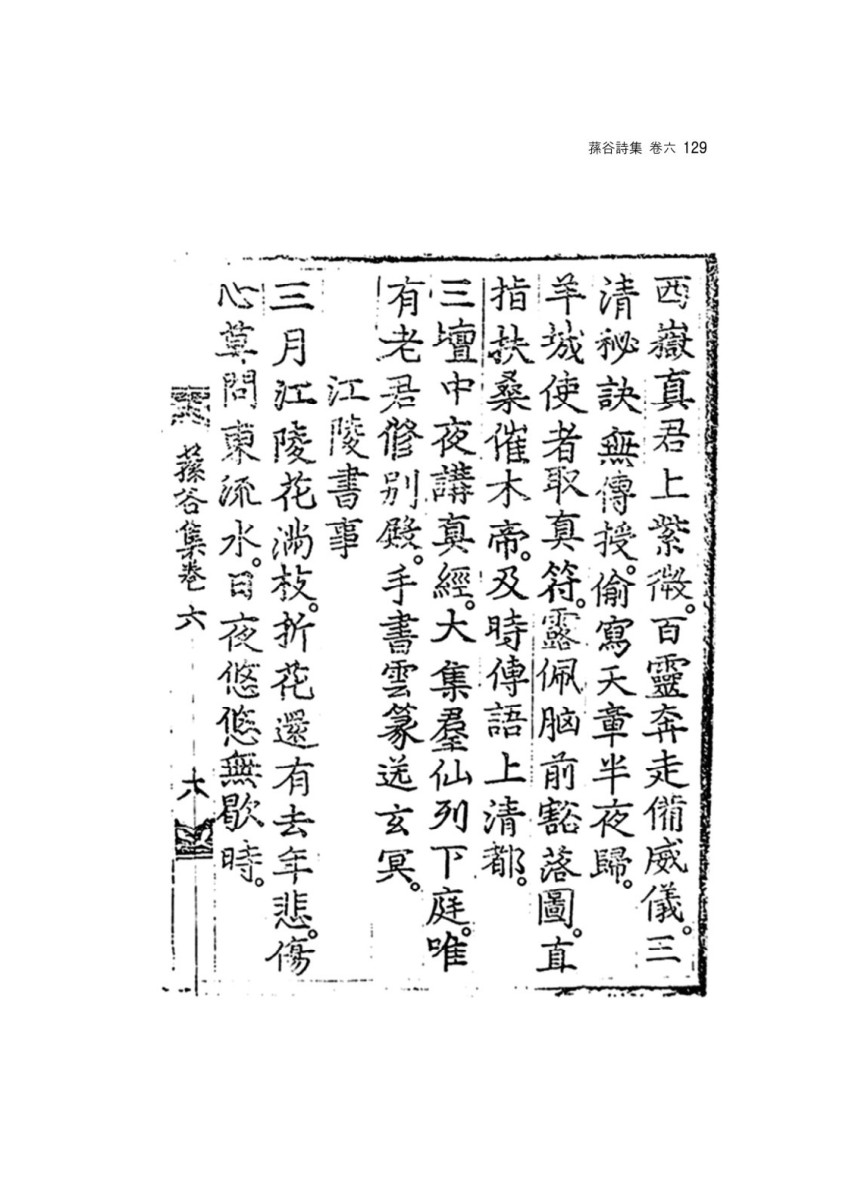 蓀谷詩集 卷六 129
西嶽真君上紫微。百靈奔走備威儀。三
清秘訣無傳授。偷寫天章半夜歸。
羊城使者取真符。露佩胸前豁落圖。直
指扶桑催木帝。及時傳語上清都。
三壇中夜講真經。大集群仙列下庭。唯
有老君修別殿。手書雲篆送玄冥。
江陵書事
三月江陵花滿枝。折花還有去年悲。傷
心莫問東流水。日夜悠悠無歇時。
蓀谷集卷六
六